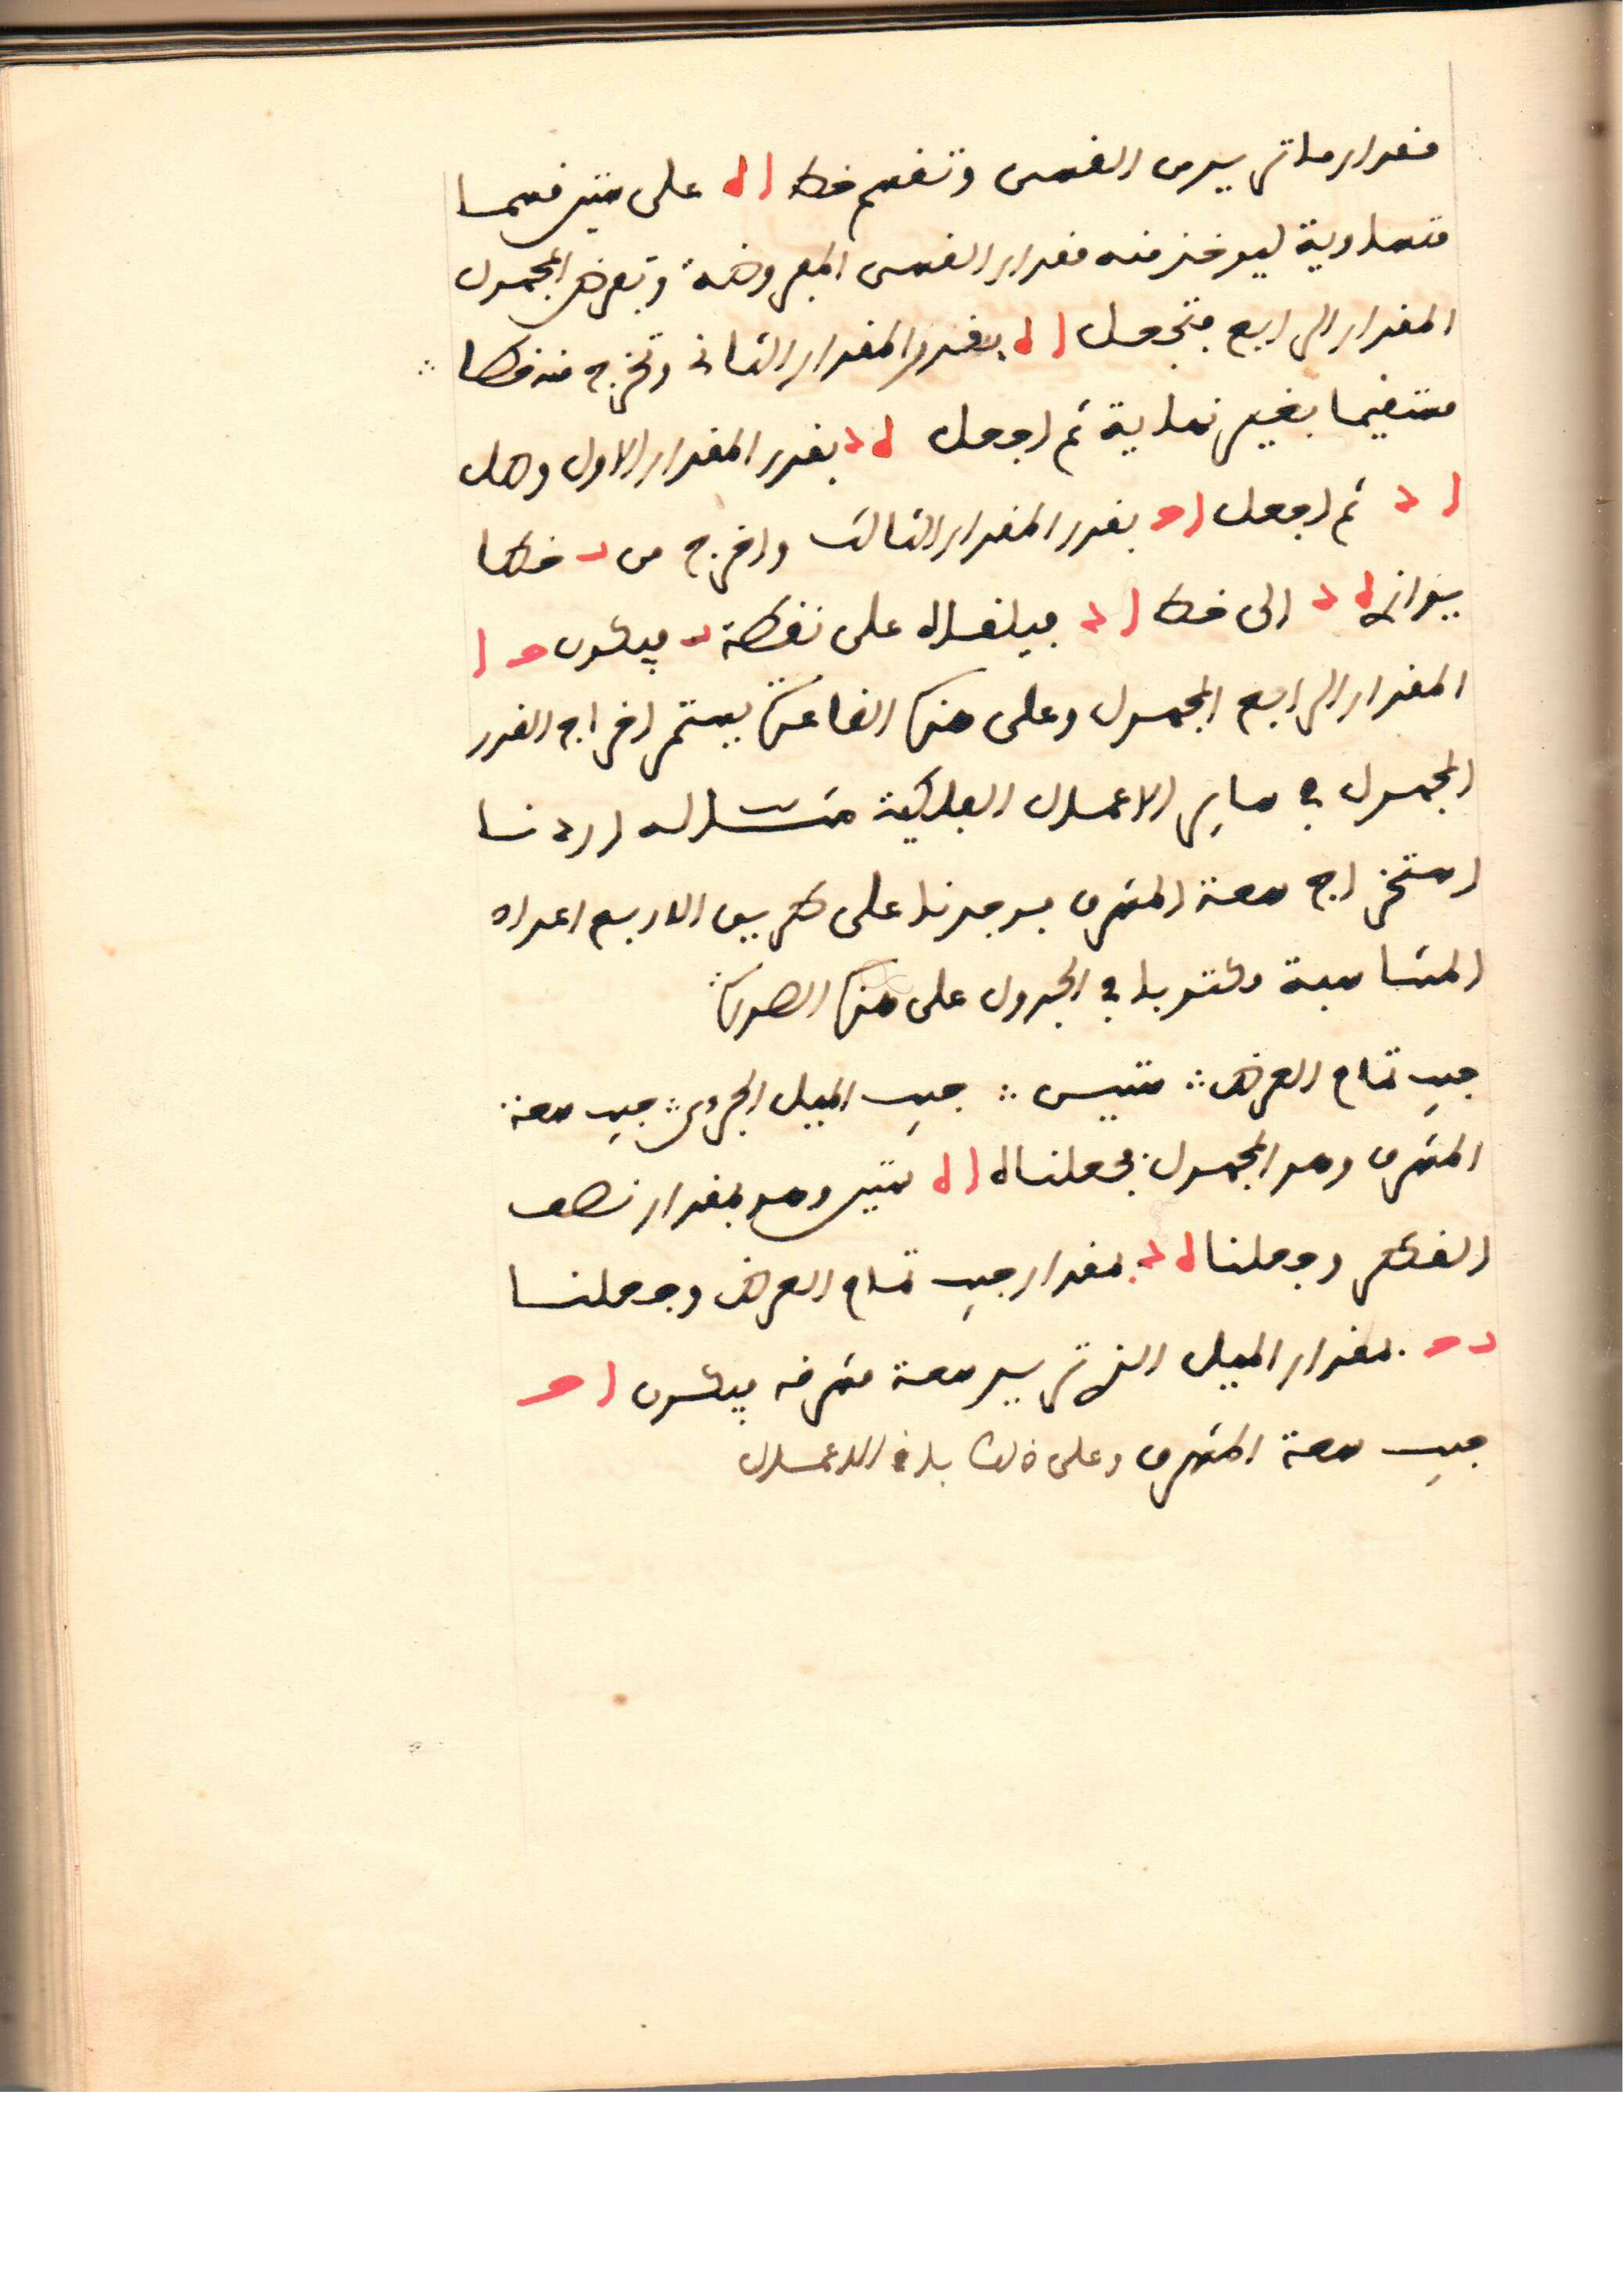 مقدار ما تريد من القسى وتقسم خط ا ه على ستين قسما
متساوية ليوخذ منه مقدار القسى المعروضة وتعرض المجهول
المقدار الرابع فتجعل ا ه بقدر المقدار الثانى وتخرج منه خطا
مستقيما بغير نهاية ثم اجعل ه د بقدر المقدار الاول وصل
ا د ثم اجعل ا و بقدر المقدار الثالث واخرج من خطا
يوازى ه د الى خط ا د فيلقاه على نقطة فيكون و ا
المقدار الرابع المجهول وعلى هذه القاعدة يستمر اخراج القدر
المجهول في ساير الاعمال الفلكية مثاله اردنا
استخراج سعة المشرق فوجدنا على طريق الاربع اعداد
المتناسبة مكتوبا في الجدول على هذه الصورة
جيب تمام العرض ∴ ستين ∴ جيب الميل الجزوى ∴ جيب سعة
المشرق وهو المجهول فجعلنا ا ه ستين وهو بمقدار نصف
القطر وجعلنا ه د بمقدار جيب تمام العرض وجعلنا
د و بمقدار الميل الذى تريد سعة مشرقه فيكون ا و
جيب سعة المشرق وعلى ذلك باقى الاعمال